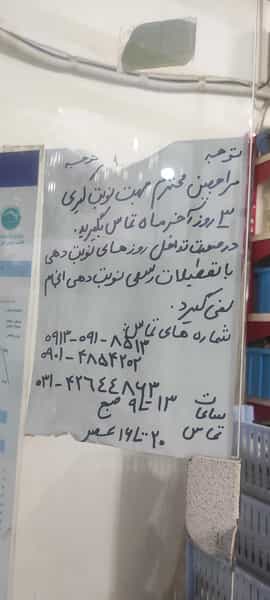 توجه توجه
مراجعین محترم جهت نوبت گیری
۳ روز آخر ماه تماس بگیرید.
در صورت تداخل روزهای نوبت دهی
با تعطیلات رسمی نوبت دهی انجام
نمی گیرد.
شماره های تماس:
۰۹۱۳-۰۹۱-۸۵۱۳
۰۹۰۱-۴۸۵۴۲۰۲
۰۳۱-۴۲۶۴۴۸۶۳
ساعات ۹ تا ۱۳ صبح
تماس ۱۶ تا ۲۰ عصر